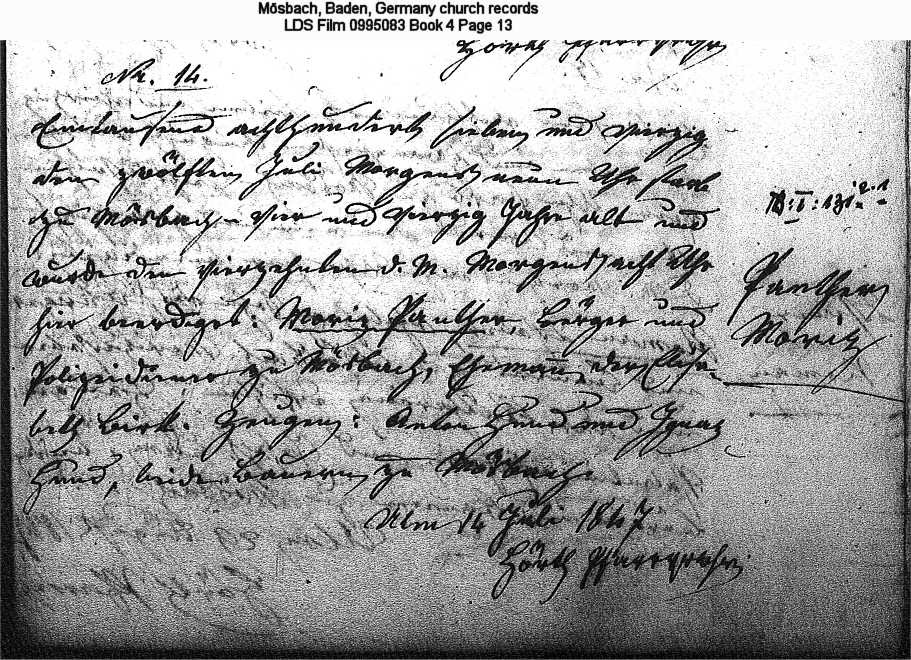 Mösbach, Baden, Germany church records
LDS Film 0995083 Book 4 Page 13
Nr. 14.
Eintausend achthundert sieben und vierzig
den zwölften Juli Morgens neun Uhr starb
zu Mösbach – vier und vierzig Jahre alt und
wurde den vierzehnten d. M. Morgens acht Uhr
hier beerdiget: Moriz Panther, Bürger und
Polizeidiener zu Mösbach, Ehemann der Elisa-
beth Birk. Zeugen: Anton Hund und Ignaz
Hund, beide Bauern zu Mösbach.
Ulm 14 Juli 1847
Hörth
Panther
Moriz